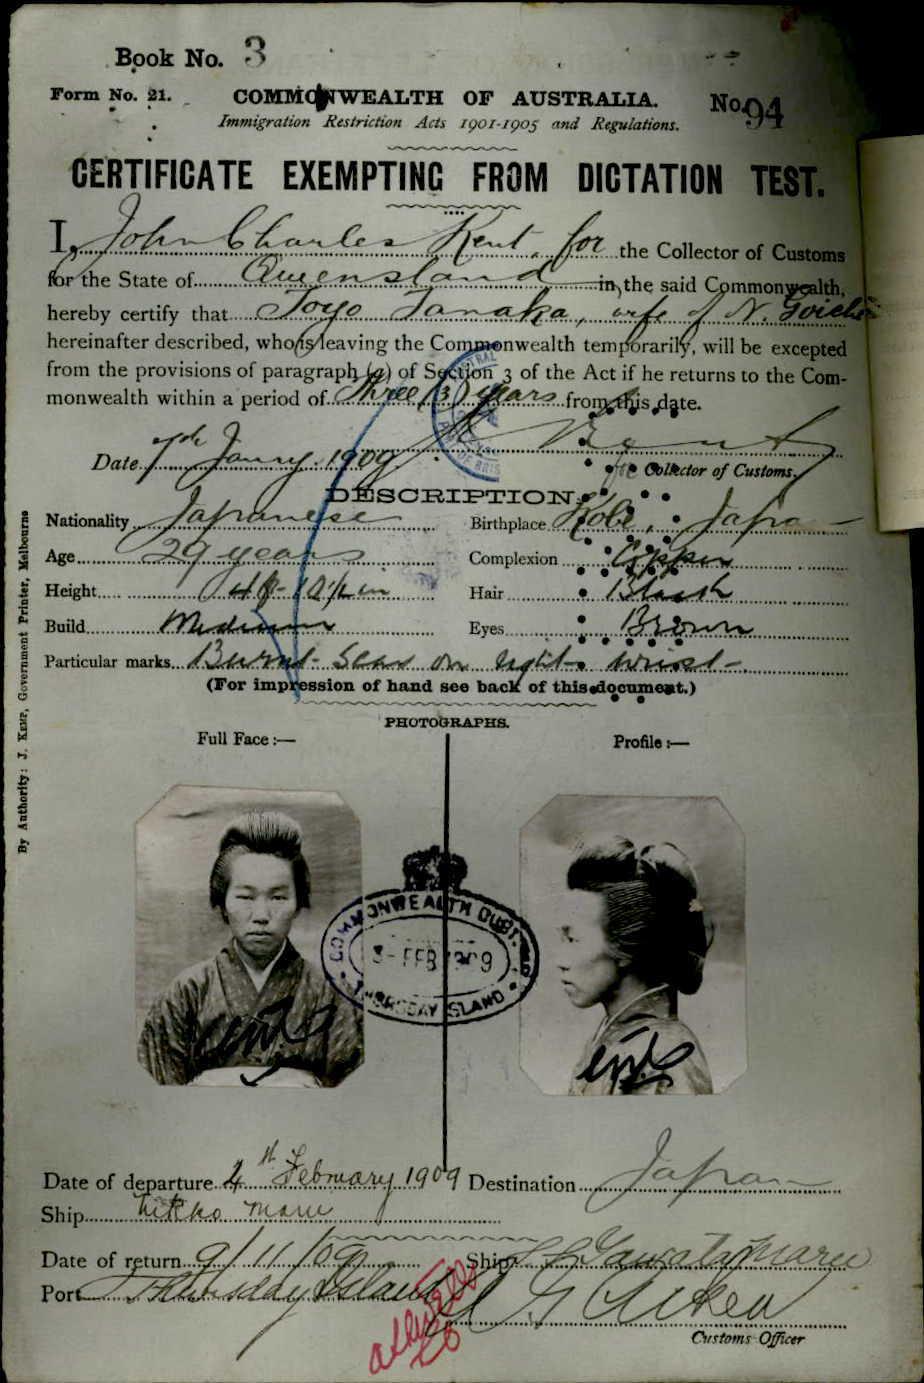 Book No. 3
Form No. 21.
COMMONWEALTH OF AUSTRALIA.
No. 94
Immigration Restriction Acts 1901-1905 and Regulations.
CERTIFICATE EXEMPTING FROM DICTATION TEST.
I, John Charles Kent, for the Collector of Customs
for the State of Queensland in the said Commonwealth,
hereby certify that Toyo Tanaka, wife of N. Goichi
hereinafter described, who is leaving the Commonwealth temporarily, will be excepted
from the provisions of paragraph (a) of Section 3 of the Act if he returns to the Com-
monwealth within a period of Three (3) years from this date.
Kent
Date 7th Janry. 1909. for Collector of Customs.
DESCRIPTION.
Nationality Japanese Birthplace Kobe, Japan
Age 29 years Complexion Copper
Height 4 ft 10 1/2 in Hair Black
Build Medium Eyes Brown
Particular marks Burnt Scar on right wrist
(For impression of hand see back of this document.)
PHOTOGRAPHS.
Full Face :— Profile :—
By Authority: J. KEMP, Government Printer, Melbourne
COMMONWEALTH CUSTOMS
3 - FEB 1909
THURSDAY ISLAND
Date of departure 2th February 1909 Destination Japan
Ship Nikko Maru
Date of return 9/11/09 Ship Yawata Maru
Port Thursday Island
Customs Officer